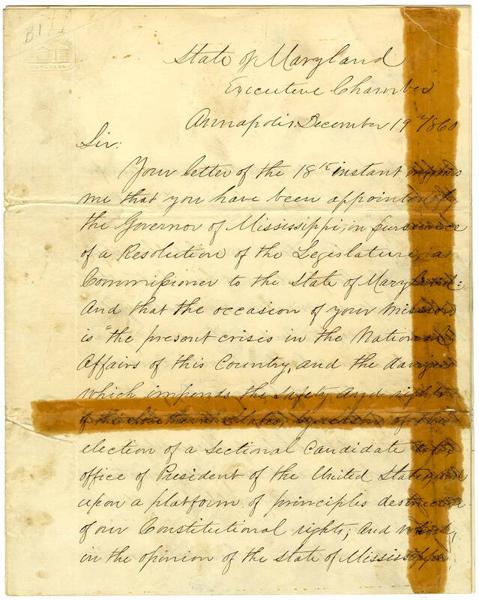 State of Maryland
Executive Chamber
Annapolis December 19th 1860
Sir:
Your letter of the 18th instant informs
me that you have been appointed by
the Governor of Mississippi, in pursuance
of a Resolution of the Legislature, a
Commissioner to the State of Maryland:
And that the occasion of your Mission
is "the present crisis in the National
Affairs of this Country, and the danger
which impends the safety and rights
of the Southern States by reason of the
election of a Sectional Candidate to the
office of President of the United States, and
upon a platform of principles destructive
of our Constitutional rights; and which,
in the opinion of the State of Mississippi